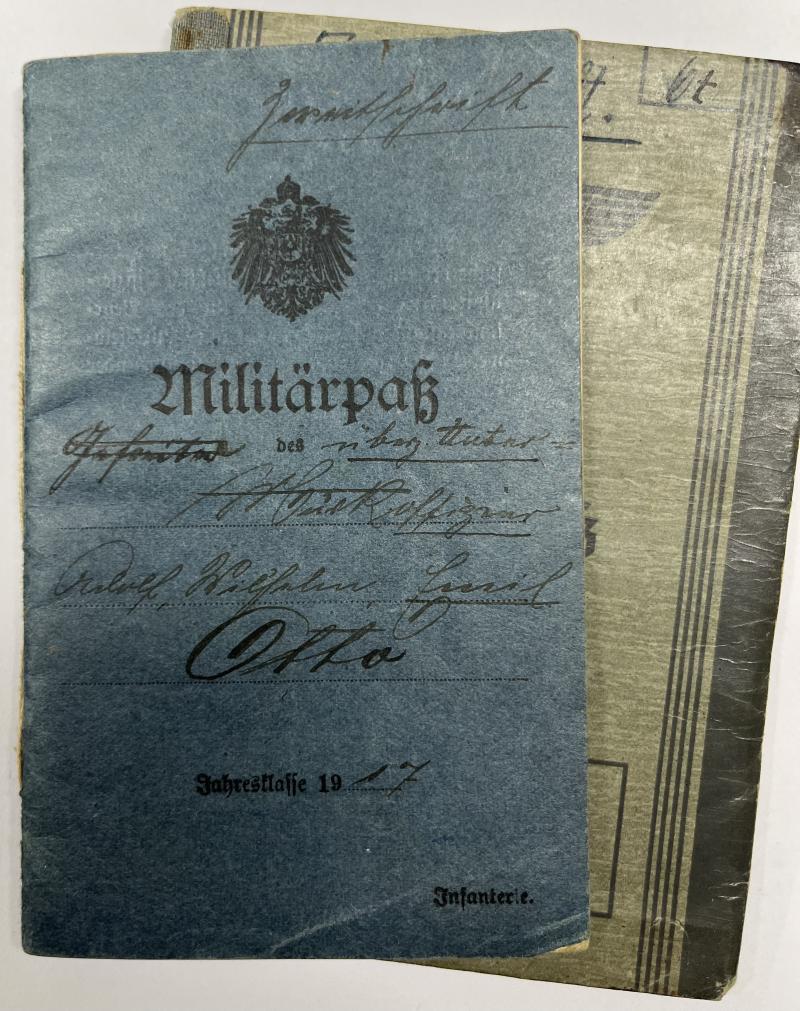 Zweitschrift
Militärpaß
Gefreiter des überz. Unter=
offiziers
Adolf, Wilhelm, Emil
Otto
Jahresklasse 19 17
Infanterie.
6t